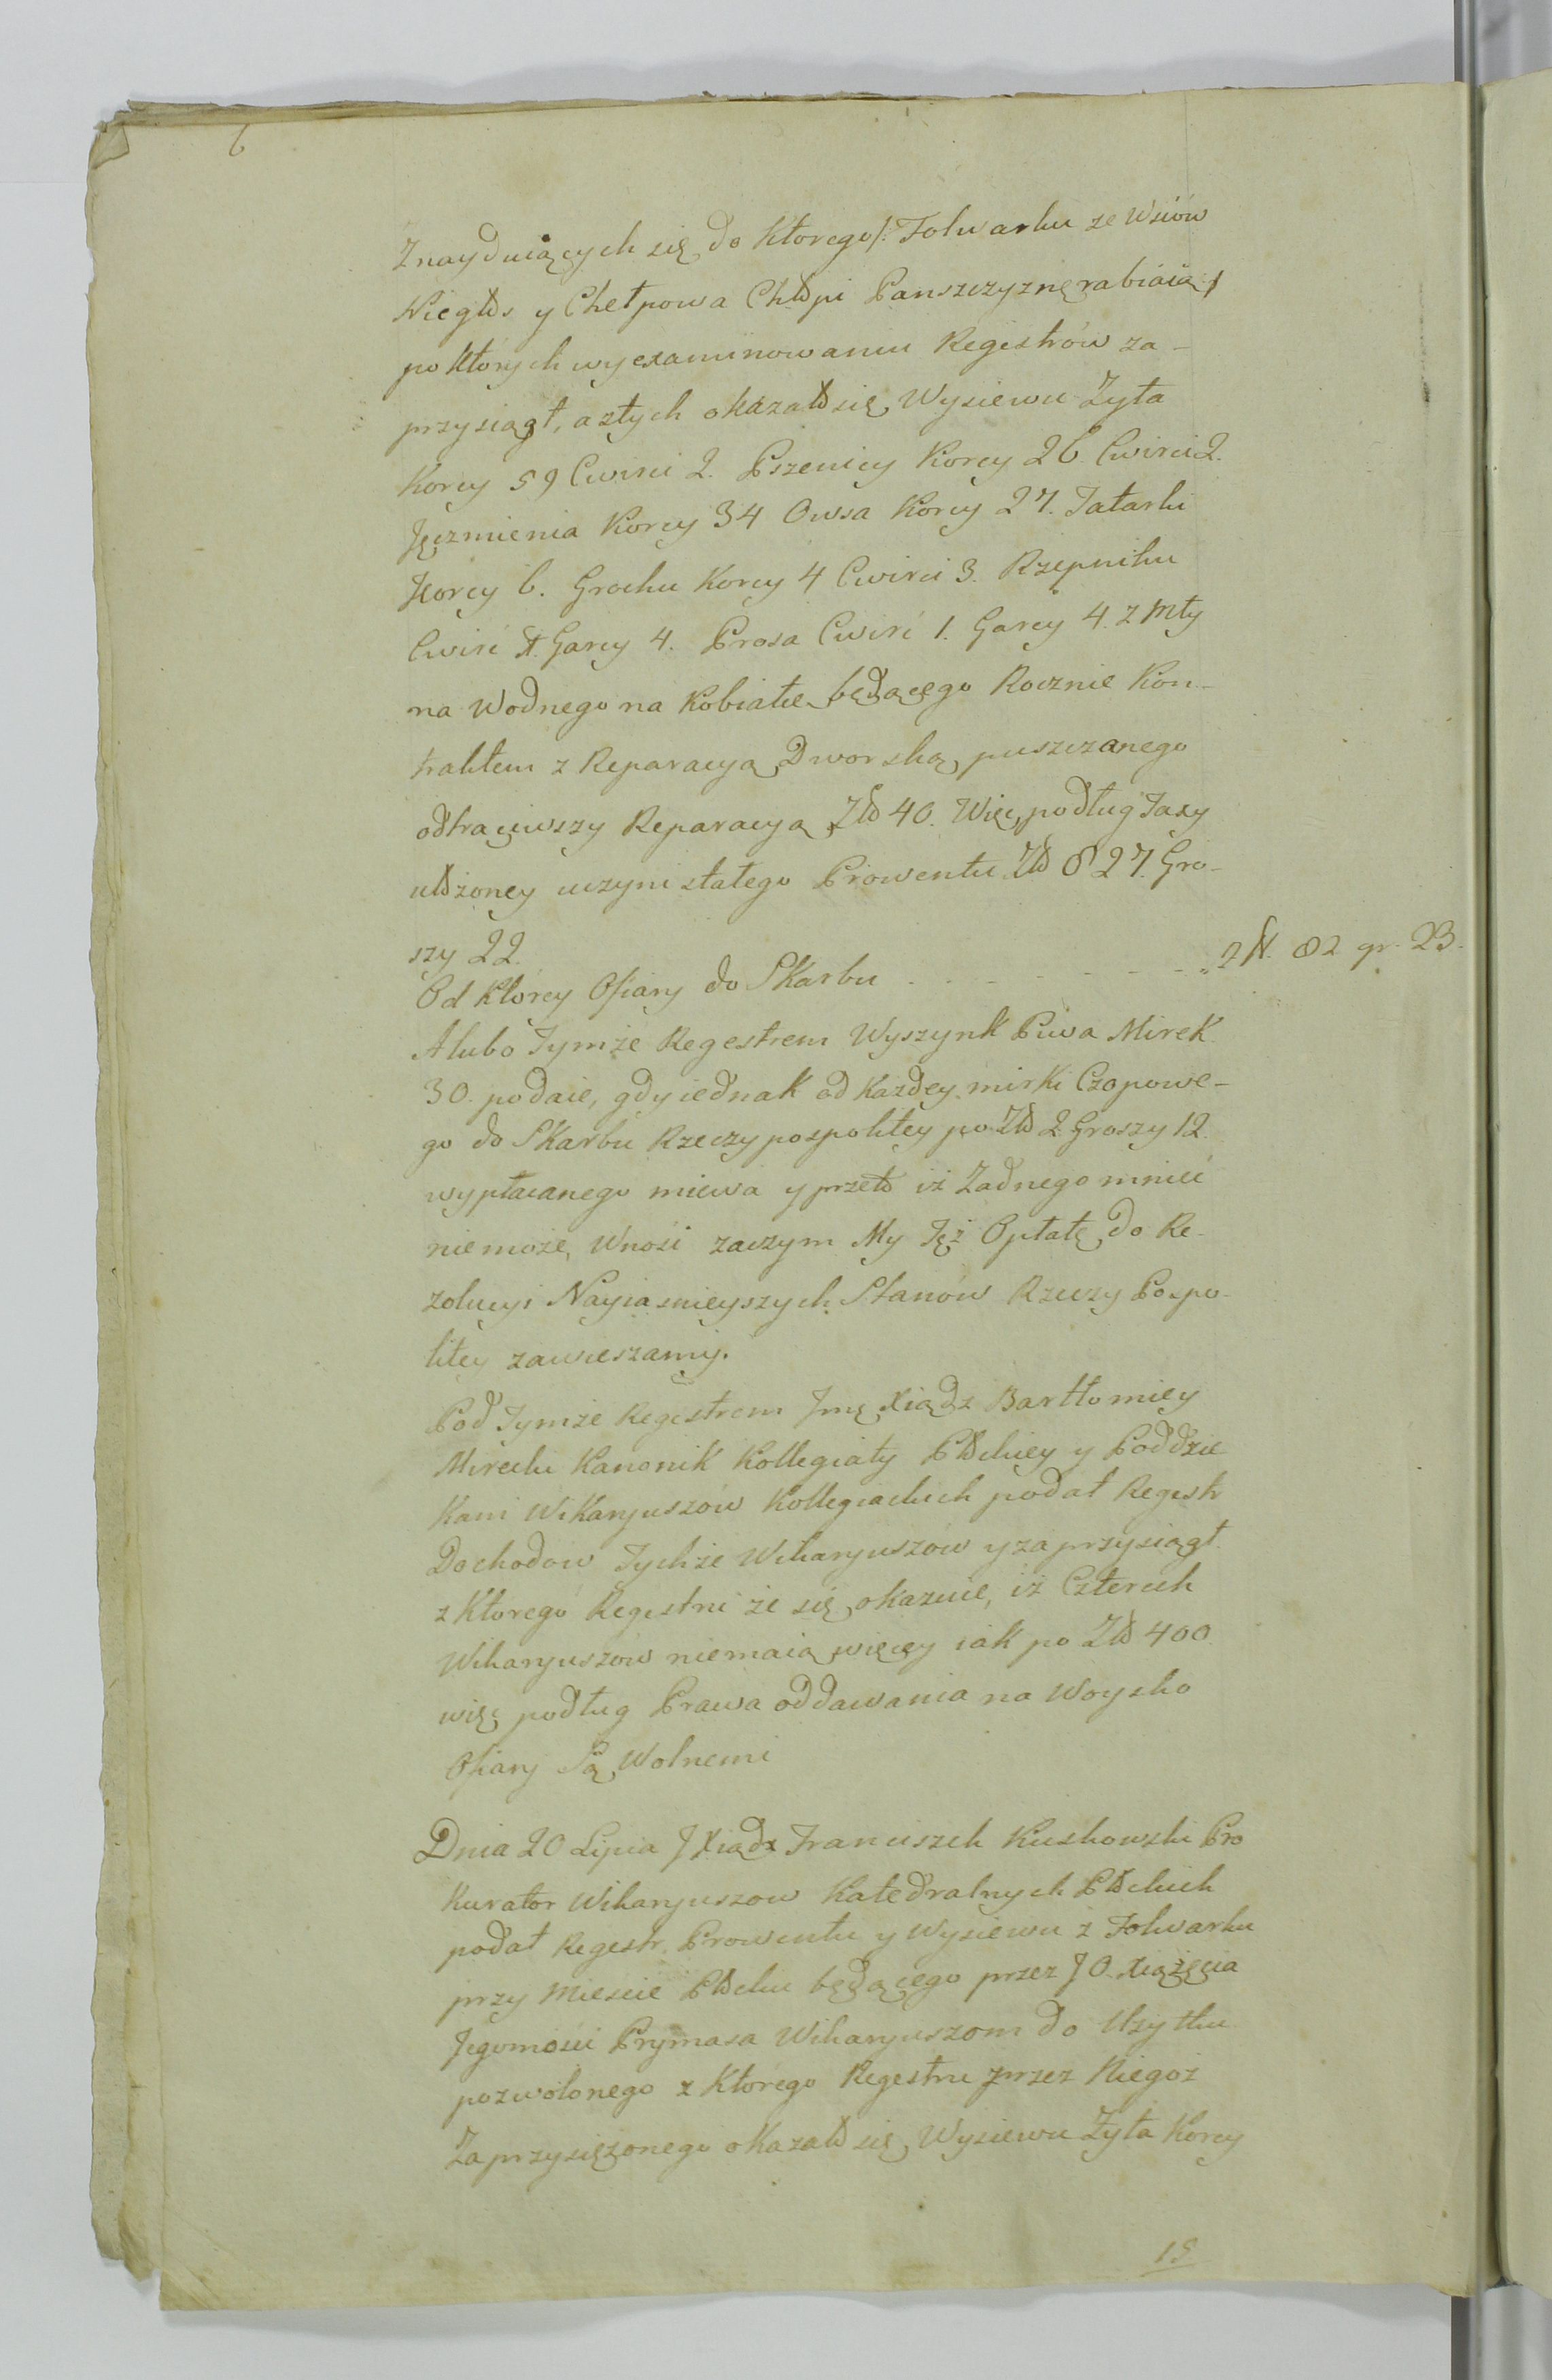 6
Znayduiących się do ktorego /: Folwarku ze Wsiów
Niegłos y Chełpowa Chłopi Panszczyznę rabiaią :/
po ktorych wyexaminowaniu Regestrów za-
przysiągł, a z tych okazało się Wysiewu Żyta
Korcy 59 Cwirci 2. Pszenicy Korcy 26 Cwirci 2.
Jęczmienia Korcy 34 Owsa Korcy 27. Tatarki
Korcy 6. Grochu Korcy 4 Cwirci 3. Rzepniku
Cwirć 1. Garcy 4. Prosa Cwirć 1. Garcy 4. z Mły
na Wodnego na Kobiałce będącego Rocznie Kon-
traktem z Reparacyą Dworską puszczanego
odtrąciwszy Reparacyą Zło 40. Więc podług Taxy
ułożoney uczyni stałego Prowentu Zło 827. Gro-
szy 22.
Od ktorey Ofiary do Skarbu . . . - - - - - zł. 82 gr. 23.
A lubo Tymże Regestrem Wyszynk Piwa Mirek
30. podaie, gdy iednak od każdey mirki Czopowe-
go do Skarbu Rzeczypospolitey po Zło 2 Groszy 12.
wypłacanego miewa y przeto iż Żadnego mnieć
niemoże, Wnosi zaczym My Tęż Opłatę do Re-
zolucyi Nayiasnieyszych Stanów Rzeczy Pospo-
litey zawieszamy.
Pod Tymże Regestrem Jmć Xiądz Bartłomiey
Mirecki Kanonik Kollegiaty Płockiey y Poddzie
kani Wikaryuszów Kollegiackich podał Regestr
Dochodow Tychże Wikaryuszów y zaprzysiągł.
z Ktorego Regestru że się okazuie, iż Czterech
Wikaryuszów niemaią więcey iak po Zło 400
więc podług Prawa oddawania na Woysko
Ofiary Są Wolnemi
Dnia 20 Lipca J Xiądz Franciszek Kuskowski Pro
kurator Wikaryuszow Katedralnych Płockich
podał Regestr Prowentu y Wysiewu z Folwarku
przy Miescie Płocku będącego przez J O. Xiążęcia
Jegomości Prymasa Wikaryuszom do Użytku
pozwolonego z Ktorego Regestru przez Niegoż
Zaprzysiężonego okazało się Wysiewu Żyta Korcy
15